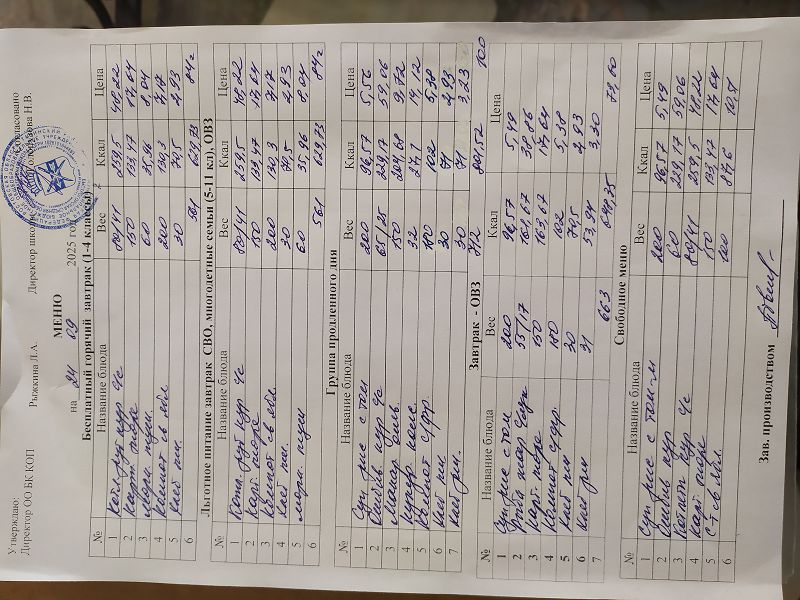 Утверждаю:
Директор ОО БК КОП Рыжкина Л.А. Директор школы
Согласовано
Н.В.
МЕНЮ
на 24 09 2025 год
Бесплатный горячий завтрак (1-4 классы)
№ Название блюда Вес Ккал Цена
1 Котл. руб кур с/с 80/41 259,5 48,22
2 Карт. пюре 150 133,47 17,64
3 Морк. туш. 60 35,96 8,04
4 Компот св ябл. 200 130,3 7,17
5 Хлеб пш. 30 70,5 2,93
6 561 629,73 84 г
Льготное питание завтрак СВО, многодетные семьи (5-11 кл), ОВЗ
№ Название блюда Вес Ккал Цена
1 Котл. руб кур с/с 80/41 259,5 48,22
2 Карт. пюре 150 133,47 17,64
3 Компот св ябл. 200 130,3 7,17
4 Хлеб пш. 30 70,5 2,93
5 Морк. туш 60 35,96 8,04
6 561 629,73 84 г
Группа продленного дня
№ Название блюда Вес Ккал Цена
1 Суп рис с том 200 96,57 5,56
2 кур 65/25 229,17 59,06
3 Макар. отв. 150 204,68 9,72
4 Кукур. конс. 32 14,12
5 Компот с/фр. 180 102 5,38
6 Хлеб пш. 30 71 2,93
7 Хлеб рж. 30 71 3,23
712 801,52 100
Завтрак - ОВЗ
№ Название блюда Вес Ккал Цена
1 Суп рис с том 200 96,57 5,49
2 Рыба 55/17 161,67 38,86
3 Карт. пюре 150 163,67 17,64
4 Компот с/фр. 180 102 5,38
5 Хлеб пш 30 70,5 2,93
6 Хлеб рж 31 53,94 3,30
7 663 648,35 73,60
Свободное меню
№ Название блюда Вес Ккал Цена
1 Суп рис с том-м 200 96,57 5,49
2 кур 60 229,17 59,06
3 Котлет кур с/с 80/41 259,5 48,22
4 Карт. пюре 150 133,47 17,64
5 С-т св ябл. 100 87,6 10,51
6
Зав. производством